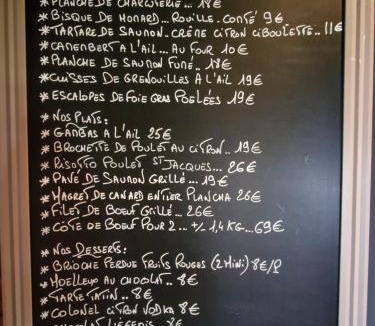 * PLANCHE DE CHARCUTERIE... 18€
* BISQUE DE HOMARD... ROUILLE. CONTÉ 9€
* TARTARE DE SAUMON. CRÈME CITRON CIBOULETTE.. 11€
* CAMEMBERT A L'AIL... AU FOUR 10€
* PLANCHE DE SAUMON FUMÉ.. 18€
* CUISSES DE GRENOUILLES À L'AIL 19€
* ESCALOPES DE FOIE GRAS POELÉES 19€
* NOS PLATS:
* GAMBAS A L'AIL 25€
* BROCHETTE DE POULET AU CITRON.. 19€
* RISOTTO POULET ST JACQUES... 26€
* PAVÉ DE SAUMON GRILLÉ... 19€
* MAGRET DE CANARD ENTIER PLANCHA 26€
* FILET DE BOEUF GRILLÉ... 26€
* CÔTE DE BOEUF POUR 2... +/- 1,4 KG... 69€
* NOS DESSERTS:
* BRIOCHE PERDUE FRUITS ROUGES (2 MINI) 8€/P
* MOELLEUX AU CHOCOLAT.. 8€
* TARTE TATIN.. 8€
* COLONEL CITRON VODKA 8€
* CHOCOLAT LIÉGEOIS.. 8€